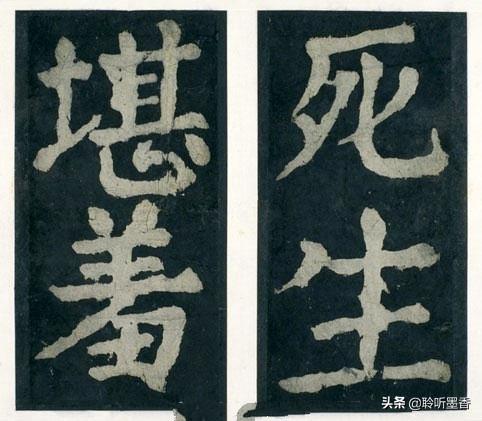 死生
堪羞
头条 @聆听墨香